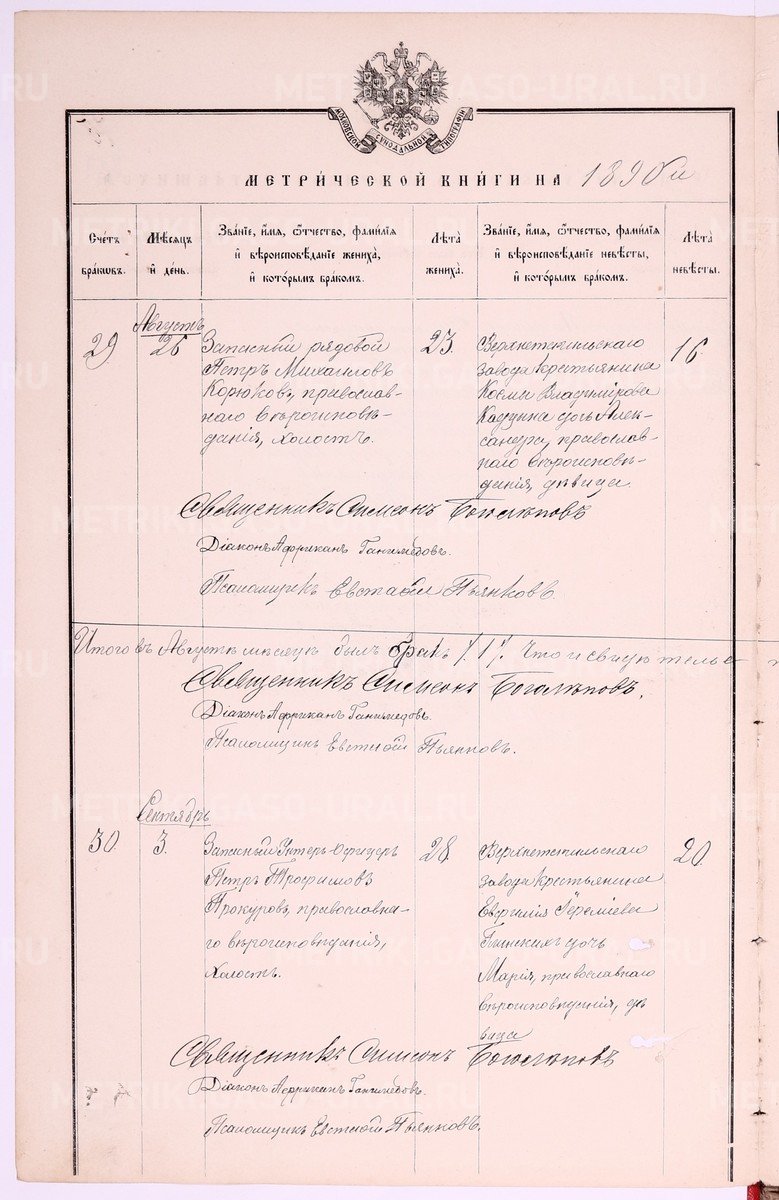 МОСКОВСКОЙ СѴНОДАЛЬНОЙ ТИПОГРАФІИ
МЕТРИ́ЧЕСКОЙ КНИ́ГИ НА 1890 й
Сче́тъ бра́ковъ.
Мѣ́сяцъ и҆ де́нь.
Зва́нїе, и҆́мѧ, ѻ҆́тчество, фами́лїѧ
и҆ вѣроисповѣ́данїе жениха̀,
и҆ кото́рымъ бра́комъ.
Лѣ́та жениха̀.
Зва́нїе, и҆́мѧ, ѻ҆́тчество, фами́лїѧ
и҆ вѣроисповѣ́данїе невѣ́сты,
и҆ кото́рымъ бра́комъ.
Лѣ́та невѣ́сты.
Августъ
29
26
Запасный рядовой
Петръ Михаиловъ
Корюковъ, православ-
наго вѣроисповѣ-
данія, холостъ.
23.
Верхнетагильскаго
завода крестьянина
Космы Владимірова
дочь Алек-
сандра, православ-
наго вѣроисповѣ-
данія, дѣвица
16.
Священникъ Симеонъ Боголѣповъ
Діаконъ Африканъ Ганимедовъ.
Псаломщикъ Евстафій Пьянковъ.
Итого въ Августѣ мѣсяцѣ былъ бракъ /.1/. Что и свидѣтельс
Священникъ Симеонъ Боголѣповъ.
Діаконъ Африканъ Ганимедовъ.
Псаломщикъ Евстафій Пьянковъ.
Сентябрь
30
3.
Запасный Унтеръ-Офицеръ
Петръ Трофимовъ
Прокуровъ, православна-
го вѣроисповѣданія,
холостъ.
28.
Верхнетагильскаго
завода крестьянина
Евфимія Іереміева
дочь
Марія, православнаго
вѣроисповѣданія, дѣ
вица
20.
Священникъ Симеонъ Боголѣповъ
Діаконъ Африканъ Ганимедовъ.
Псаломщикъ Евстафій Пьянковъ.